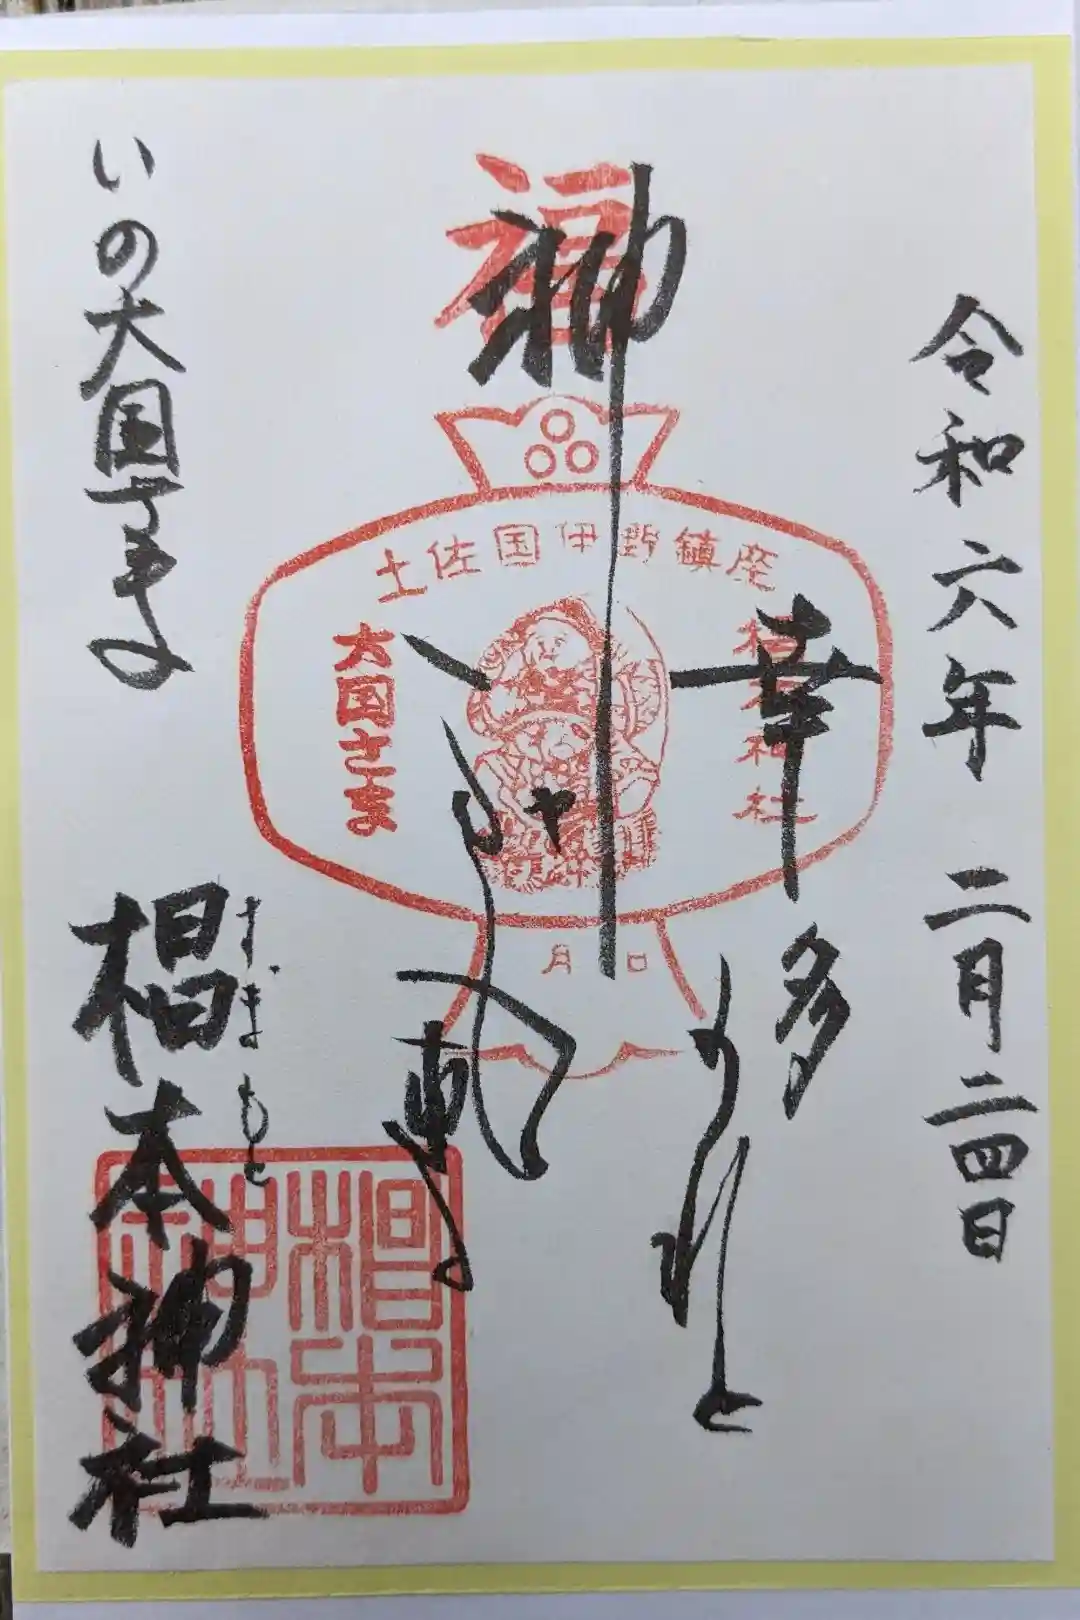 令和六年 二月二四日
幸多かれと
神
福
土佐国伊野鎮座
椙本神社
大国さま
月 日
いの大国さま
すぎもと
椙本神社
椙本神社